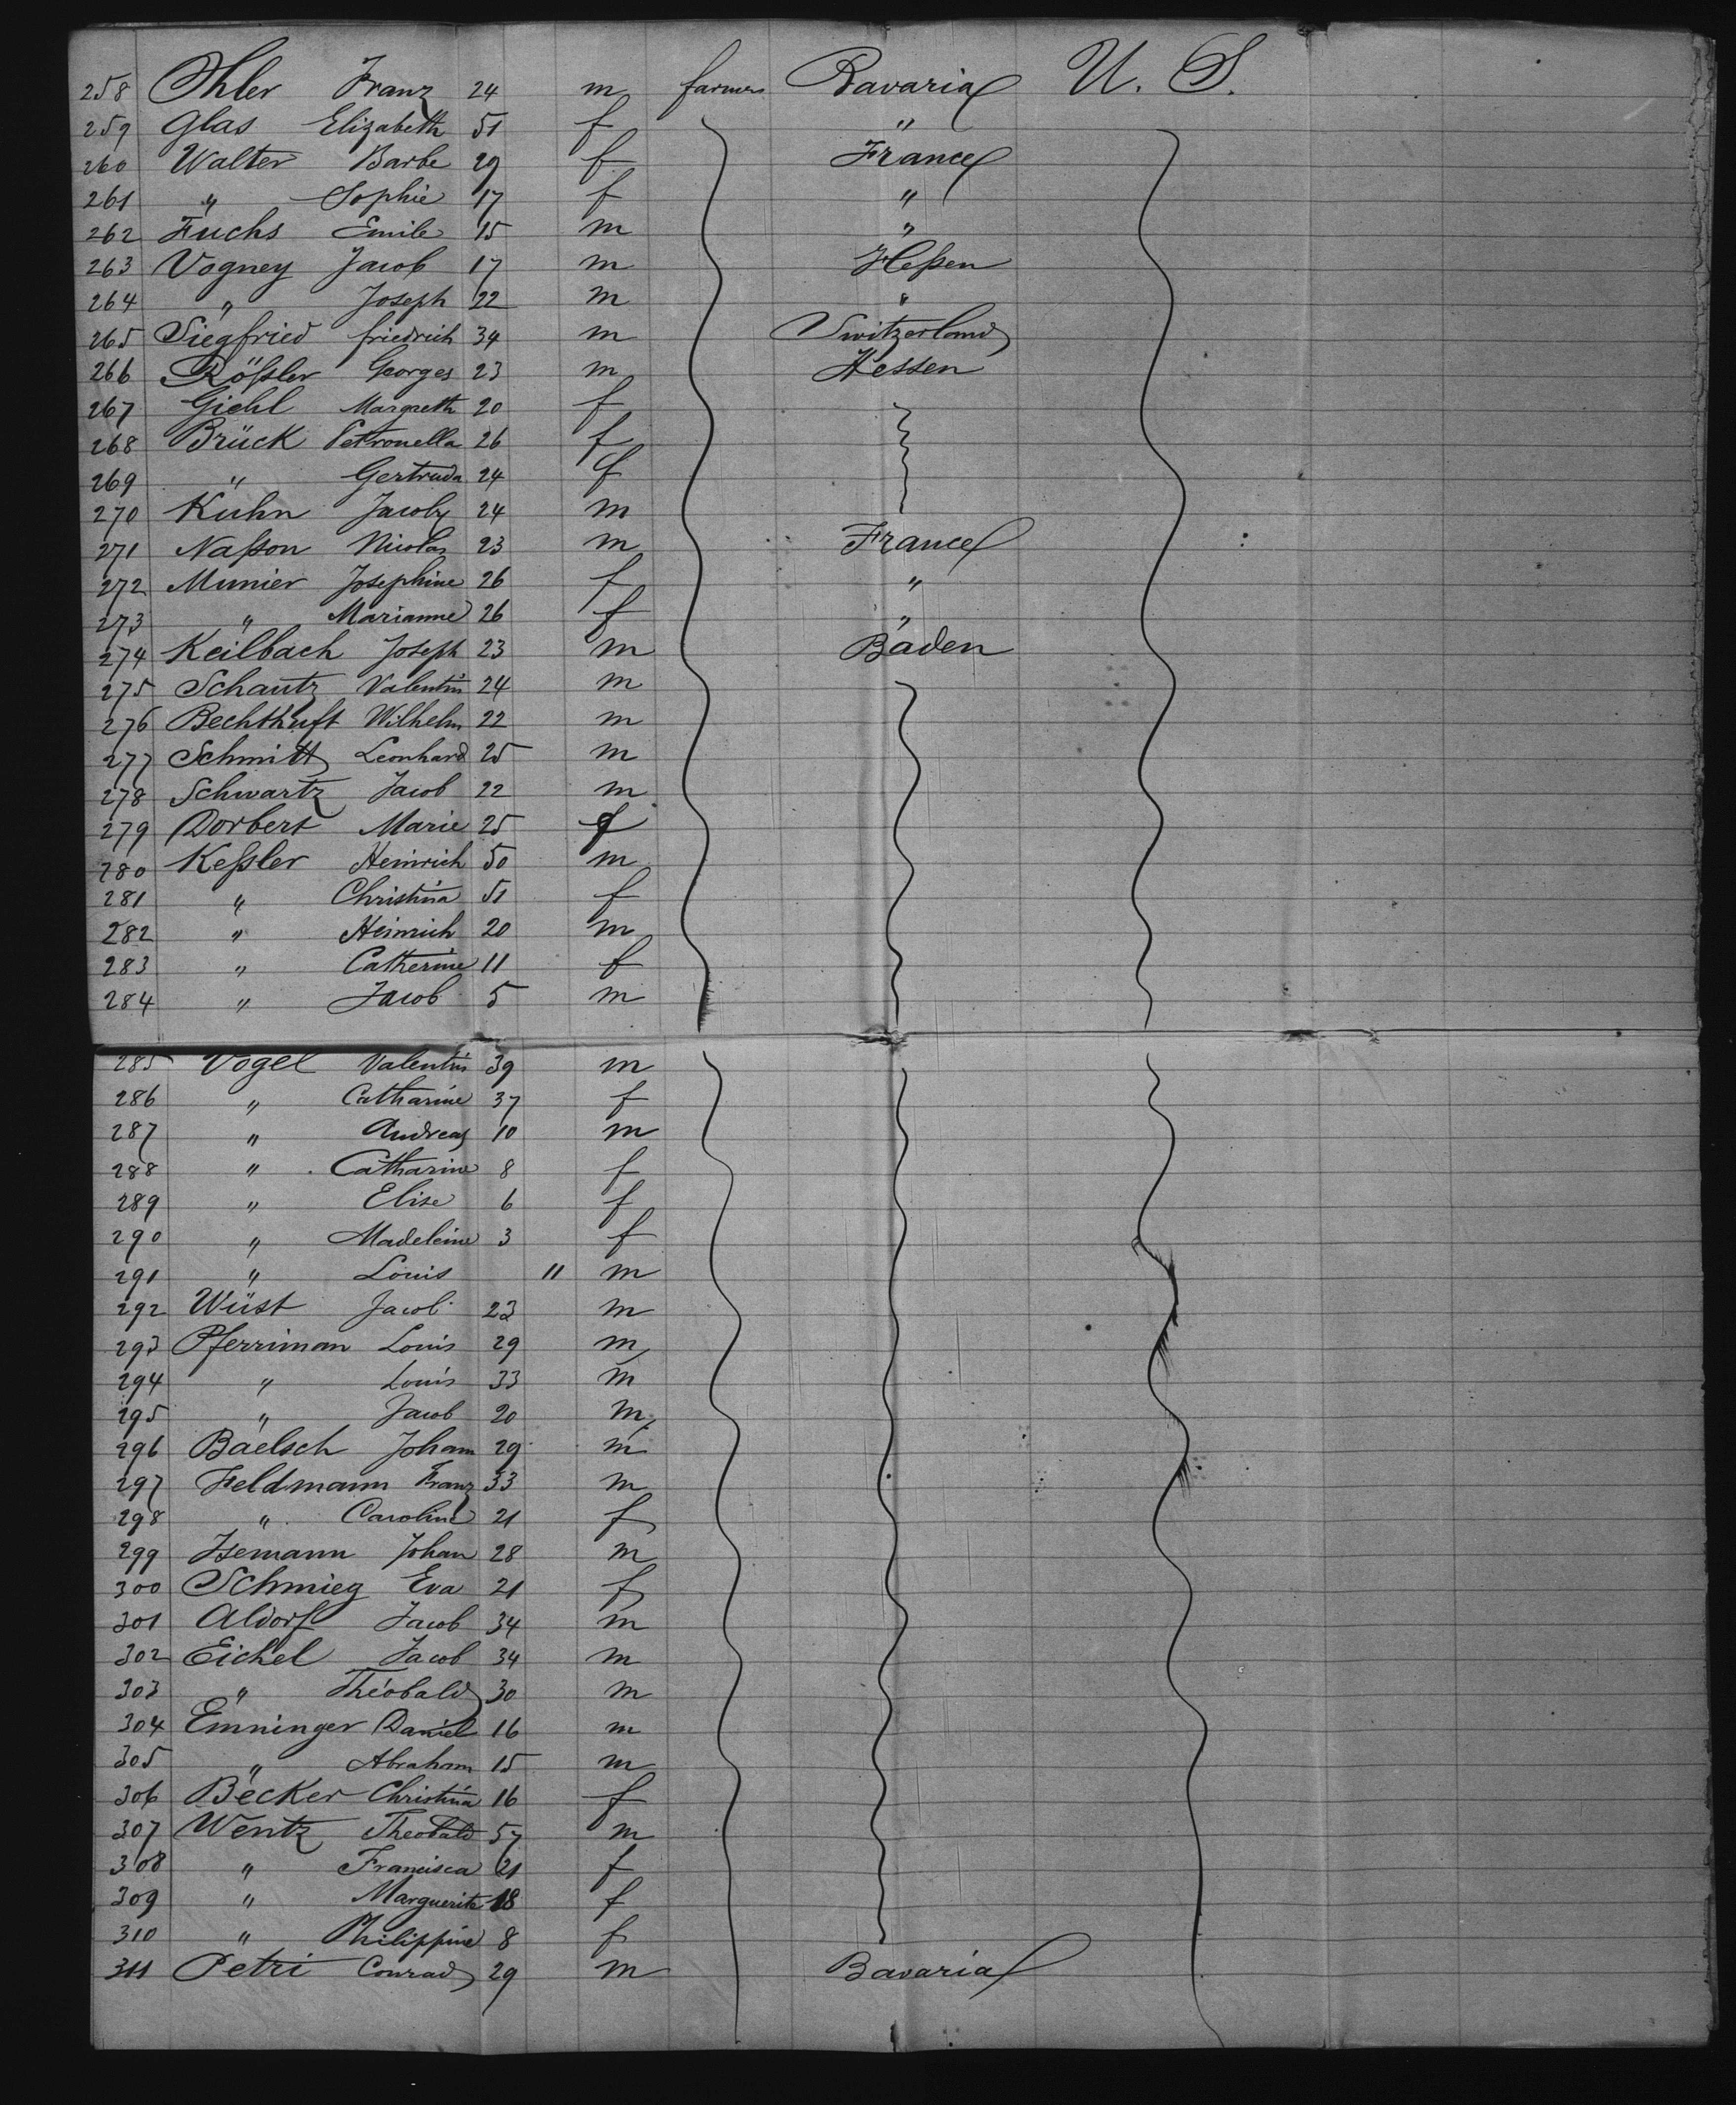 258 Ihler Franz 24 m farmer Bavaria U. S.
259 Glas Elizabeth 51 f "
260 Walter Barbe 29 f France
261 " Sophie 17 f "
262 Fuchs Emile 15 m "
263 Vogney Jacob 17 m Heßen
264 " Joseph 22 m "
265 Siegfried friedrich 34 m Switzerland
266 Rößler Georges 23 m Hessen
267 Giehl Margreth 20 f
268 Brück Petronella 26 f
269 " Gertruda 24 f
270 Kuhn Jacob 24 m
271 Naßon Nicolas 23 m France
272 Munier Josephine 26 f "
273 " Marianne 26 f "
274 Keilbach Joseph 23 m Baden
275 Schantz Valentin 24 m
276 Bechthuft Wilhelm 22 m
277 Schmitt Leonhard 25 m
278 Schwartz Jacob 22 m
279 Dorbert Marie 25 f
280 Keßler Heinrich 50 m
281 " Christina 51 f
282 " Heinrich 20 m
283 " Catherine 11 f
284 " Jacob 5 m
285 Vogel Valentin 39 m
286 " Catharine 37 f
287 " Andreas 10 m
288 " Catharine 8 f
289 " Elise 6 f
290 " Madeleine 3 f
291 " Louis 11 m
292 Wüst Jacob 23 m
293 Pferriman Louis 29 m
294 " Louis 33 m
295 " Jacob 20 m
296 Baelsch Johann 29 m
297 Feldmann Franz 33 m
298 " Caroline 21 f
299 Isemann Johan 28 m
300 Schmieg Eva 21 f
301 Aldorf Jacob 34 m
302 Eichel Jacob 34 m
303 " Théobald 30 m
304 Emninger Daniel 16 m
305 " Abraham 15 m
306 Becker Christina 16 f
307 Wentz Theobald 57 m
308 " Francisca 21 f
309 " Marguerite 18 f
310 " Philippine 8 f
311 Petri Conrad 29 m Bavaria